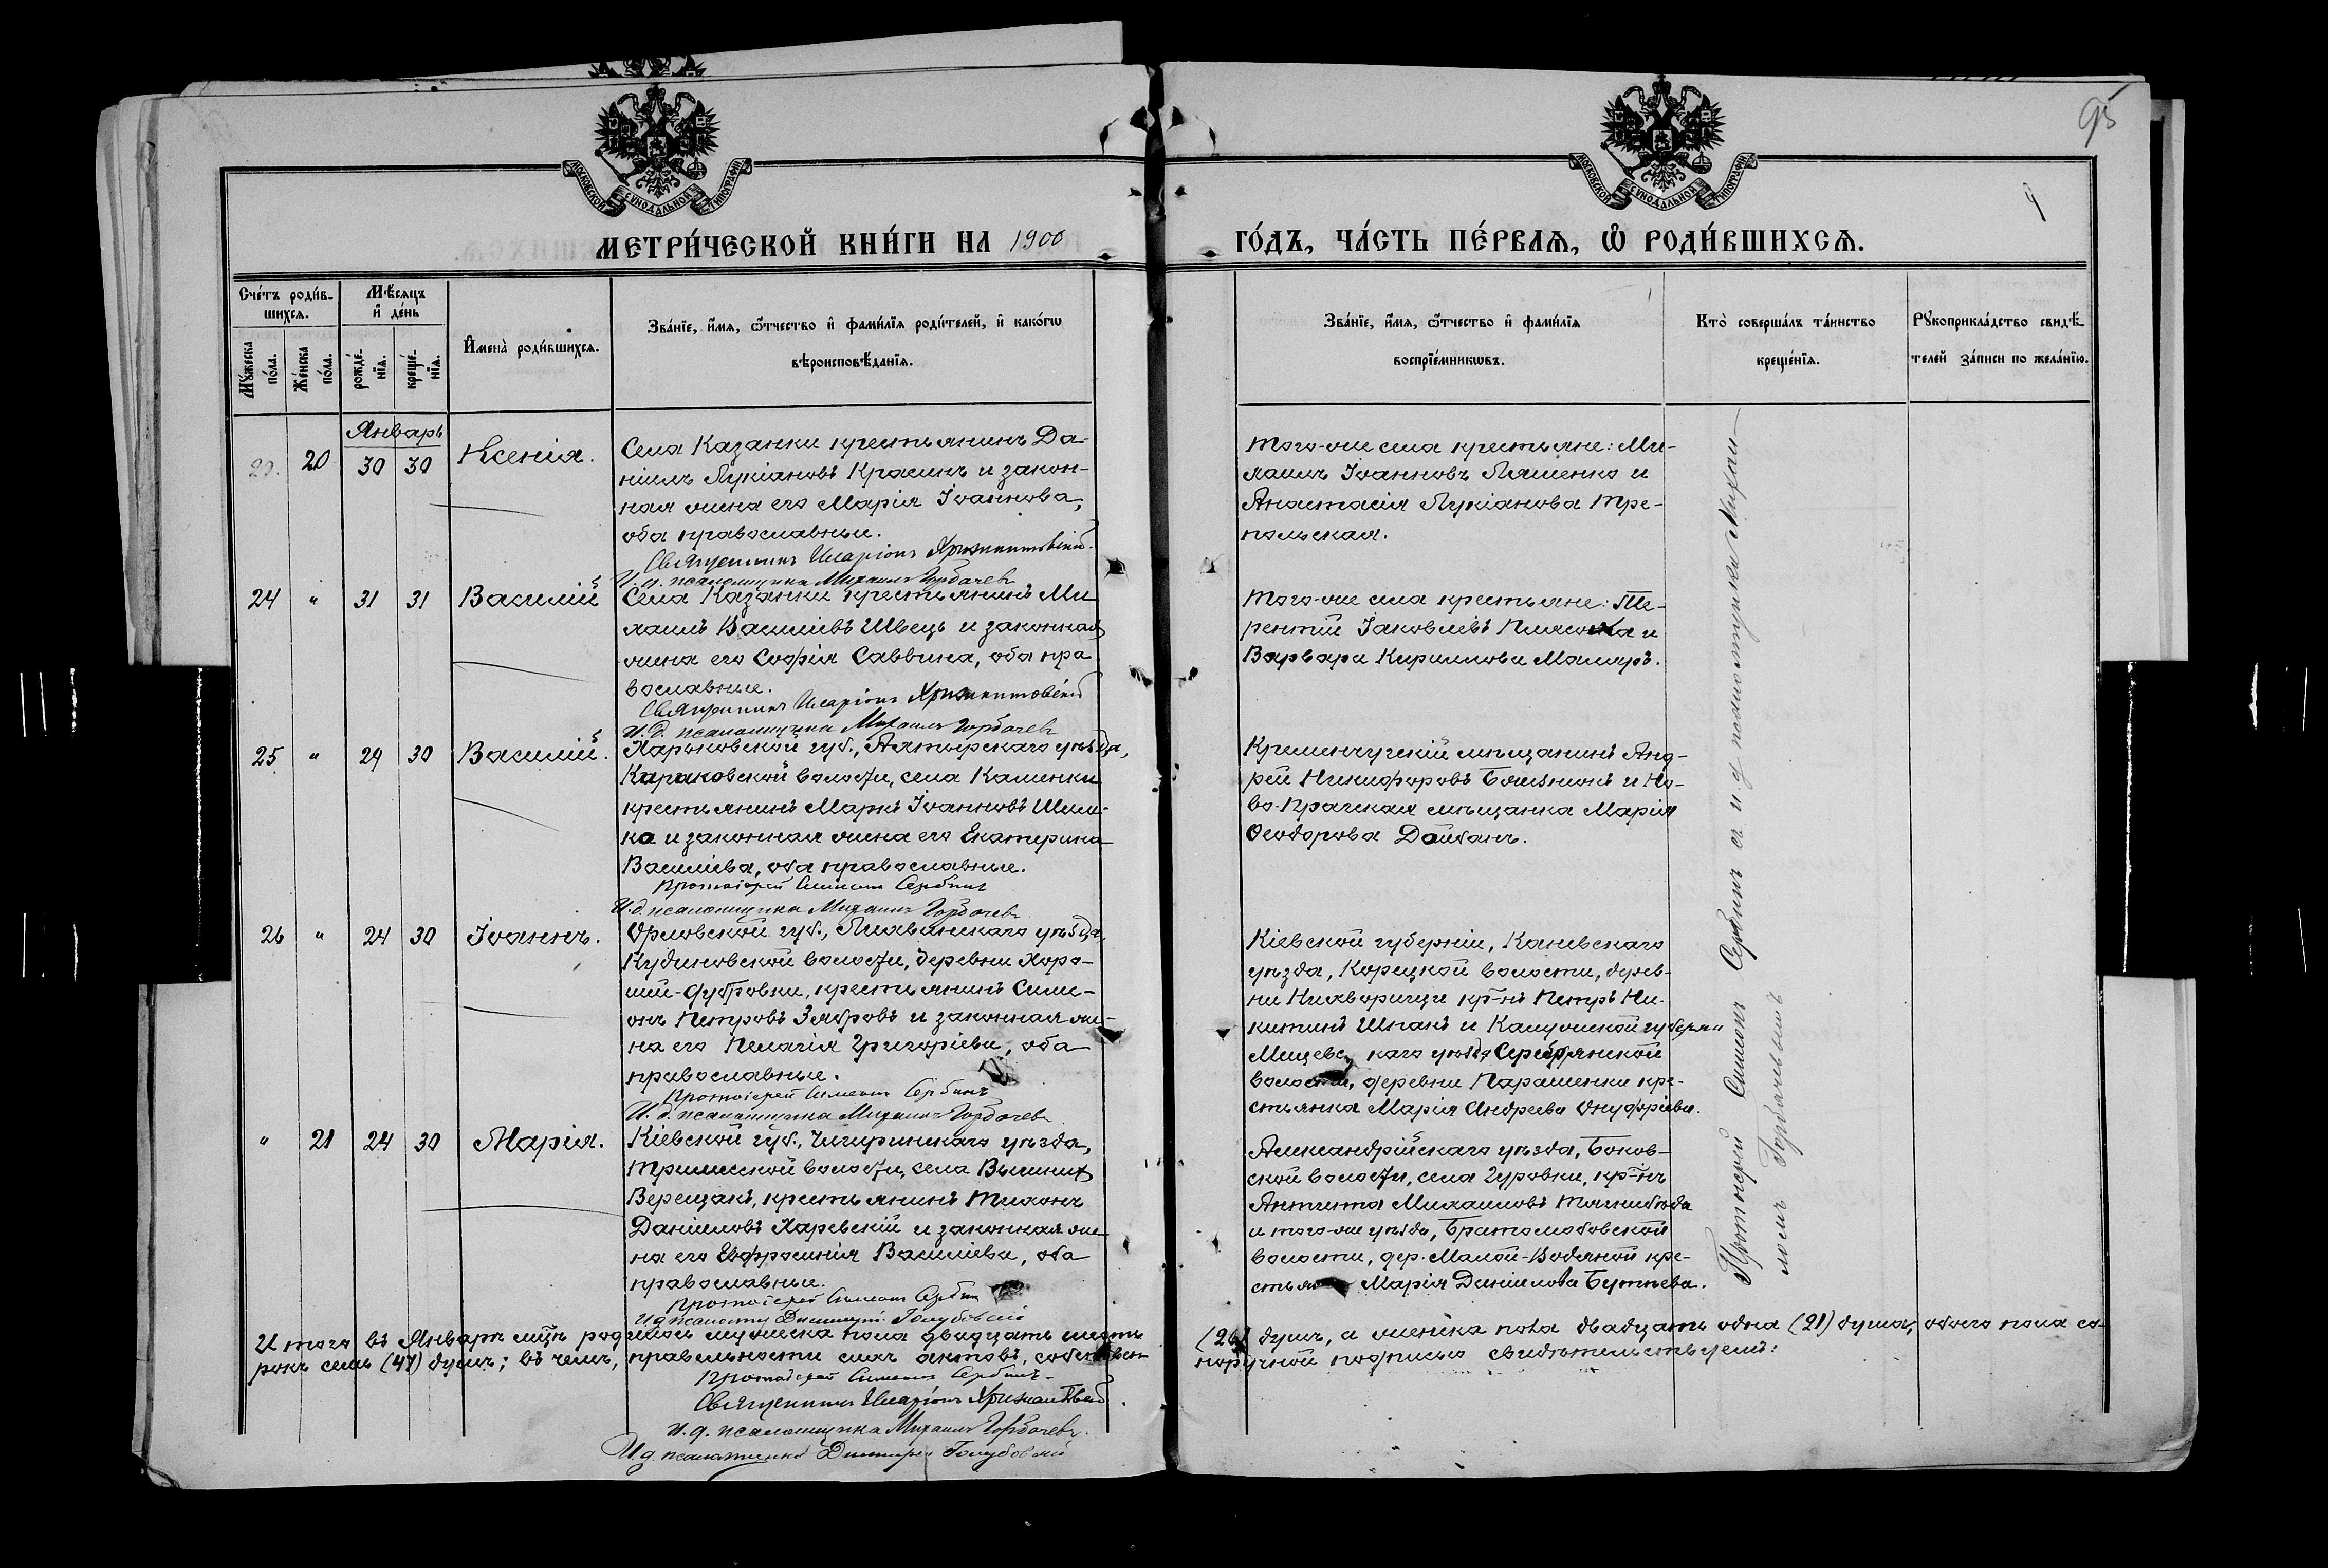 95
4
МОСКОВСКОЙ СѴНОДАЛЬНОЙ ТИПОГРАФІИ
МОСКОВСКОЙ СѴНОДАЛЬНОЙ ТИПОГРАФІИ
МЕТРИ́ЧЕСКОЙ КНИ́ГИ НА 1900
ГО́ДЪ, ЧА́СТЬ ПЕ́РВАѦ, Ѽ РОДИ́ВШИХСѦ.
Сче́тъ роди́в-
шихсѧ.
Мꙋ́жеска по́ла.
Же́нска по́ла.
Мѣ́сѧцъ
и҆ де́нь
рожде́-
нїѧ.
креще́-
нїѧ.
И҆мена̀ роди́вшихсѧ.
Зва́нїе, и҆́мѧ, ѻ҆́тчество и҆ фами́лїѧ роди́телей, и҆ како́гѡ
вѣроисповѣ́данїѧ.
Зва́нїе, и҆́мѧ, ѻ҆́тчество и҆ фами́лїѧ
воспрїе́мникѡвъ.
Кто̀ соверша́лъ та́инство
креще́нїѧ.
Рꙋкоприкла́дство свидѣ́-
телей за́писи по жела́нїю.
Январь
20 30 30 Ксенія.
Села Казанки крестьянинъ Да-
ніилъ Лукіановъ Красинъ и закон-
ная жена его Марія Іоаннова,
оба православные.
Священникъ Иларіонъ
И. д. псаломщика Михаилъ Горбачевъ
Того-же села крестьяне: Ми-
хаилъ Іоанновъ Ляшенко и
Анастасія Лукіанова Тре-
польская.
24 " 31 31 Василій
Села Казанки крестьянинъ Ми-
хаилъ Василіевъ Швецъ и законная
жена его Софія Саввина, оба пра
вославные.
Священникъ Иларіонъ
И. д. псаломщика Михаилъ Горбачевъ
Того-же села крестьяне: Те-
рентій Іаковлевъ и
Варвара Кириллова Маляръ.
25 " 24 30 Василій.
Харьковской губ., Ахтырскаго уѣзда,
волости, села Каменки
крестьянинъ Маркъ Іоанновъ
ка и законная жена его Екатерина
Василіева, оба православные.
Протоіерей Симеонъ Сербинъ
И. д. псаломщика Михаилъ Горбачевъ
Кременчугскій мѣщанинъ Анд-
рей Никифоровъ и Но-
во-Прагская мѣщанка Марія
Ѳеодорова
26 " 24 30 Іоаннъ.
Орловской губ., уѣзда,
Кудиновской волости, деревни Хоро-
шей-Дубровки, крестьянинъ Симе-
онъ Петровъ Зябровъ и законная же-
на его Пелагія Григоріева, оба
православные.
Протоіерей Симеонъ Сербинъ
И. д. псаломщика Михаилъ Горбачевъ
Кіевской губерніи, Каневскаго
уѣзда, Корецкой волости, дерев-
ни кр-нъ Петръ Ни-
китинъ Шпакъ и Калужской губерн.
скаго уѣзда Серебрянской
волости, деревни кре-
стьянка Марія Андреева Онуфріева.
" 21 24 30 Марія.
Кіевской губ., Чигиринскаго уѣзда,
Трилѣсской волости, села
Верещакъ, крестьянинъ Тихонъ
Даніиловъ Харевскій и законная же-
на его Евфросинія Василіева, оба
православные.
Протоіерей Симеонъ Сербинъ
И д псаломщ Димитрій Голубовскій
Александрійскаго уѣзда, Боков-
ской волости, села Гуровки, кр-нъ
Антипа Михаиловъ Тягнибѣда
и того-же уѣзда, Братолюбовской
волости, дер. Малой-Водяной кре-
стьянка Марія Даніилова
Протоіерей Симеонъ Сербинъ съ и д псаломщика Михаи
ломъ Горбачевымъ
И того въ Январѣ мцѣ родилось мужеска пола двадцать шесть (26) душъ, а женска пола двадцать одна (21) душа; обоего пола со-
рокъ семь (47) душъ; въ чемъ, правильности сихъ актовъ, собственноручной подписью свидѣтельствуемъ:
Протоіерей Симеонъ Сербинъ
Священникъ Иларіонъ
И. д. псаломщика Михаилъ Горбачевъ.
И. д. псаломщика Димитрій Голубовскій